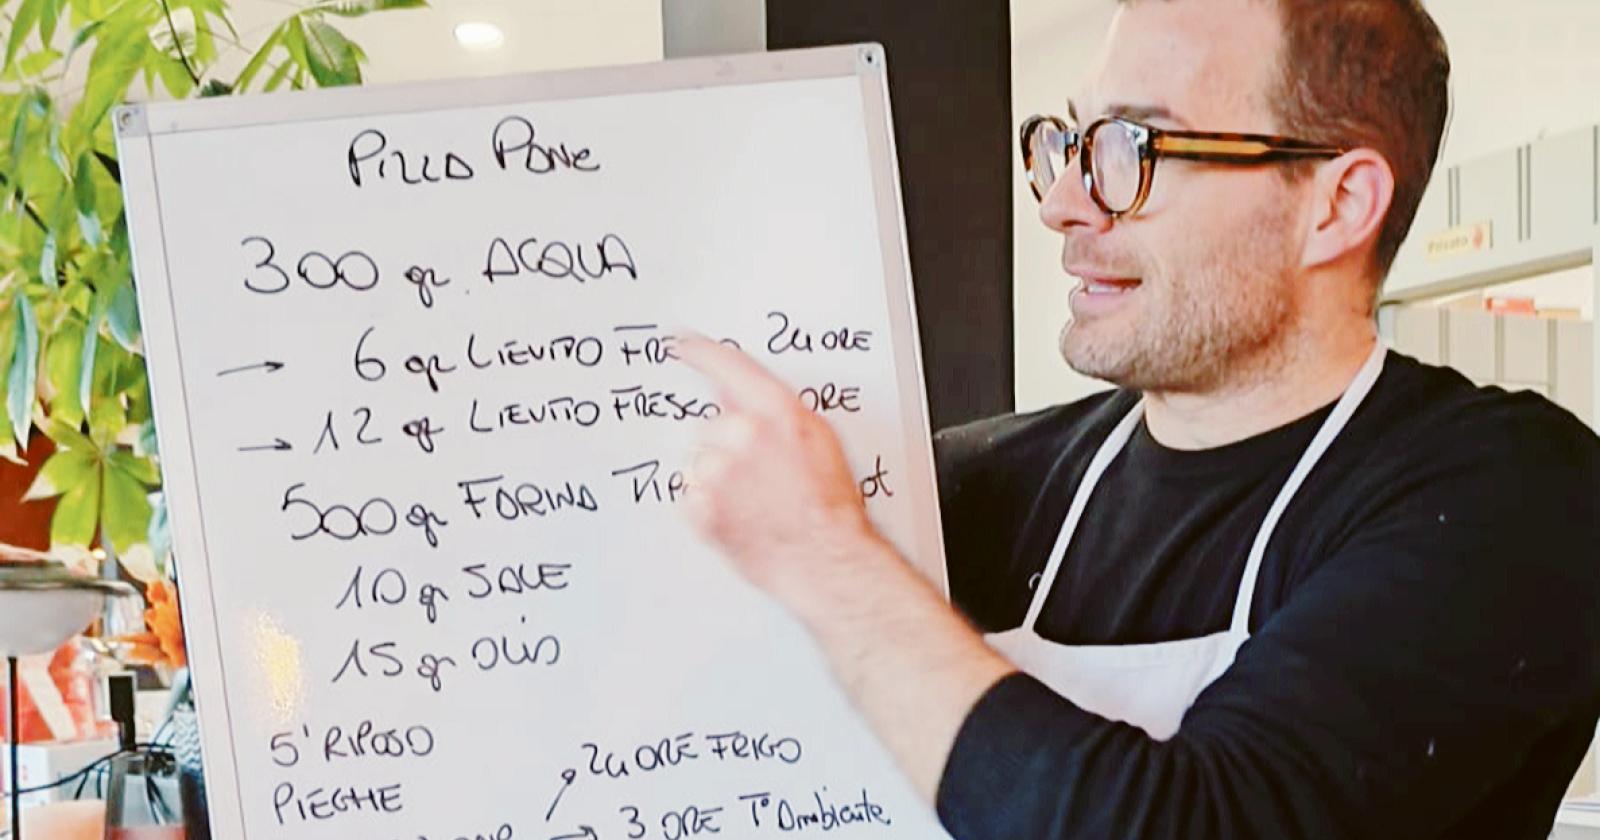 PIZZA PANE
300 gr. ACQUA
→ 6 gr LIEVITO 24 ORE
→ 12 gr LIEVITO FRESCO ORE
500 gr FARINA
10 gr SALE
15 gr OLIO
5' RIPOSO
PIEGHE
24 ORE FRIGO
→ 3 ORE T° Ambiente
Privato